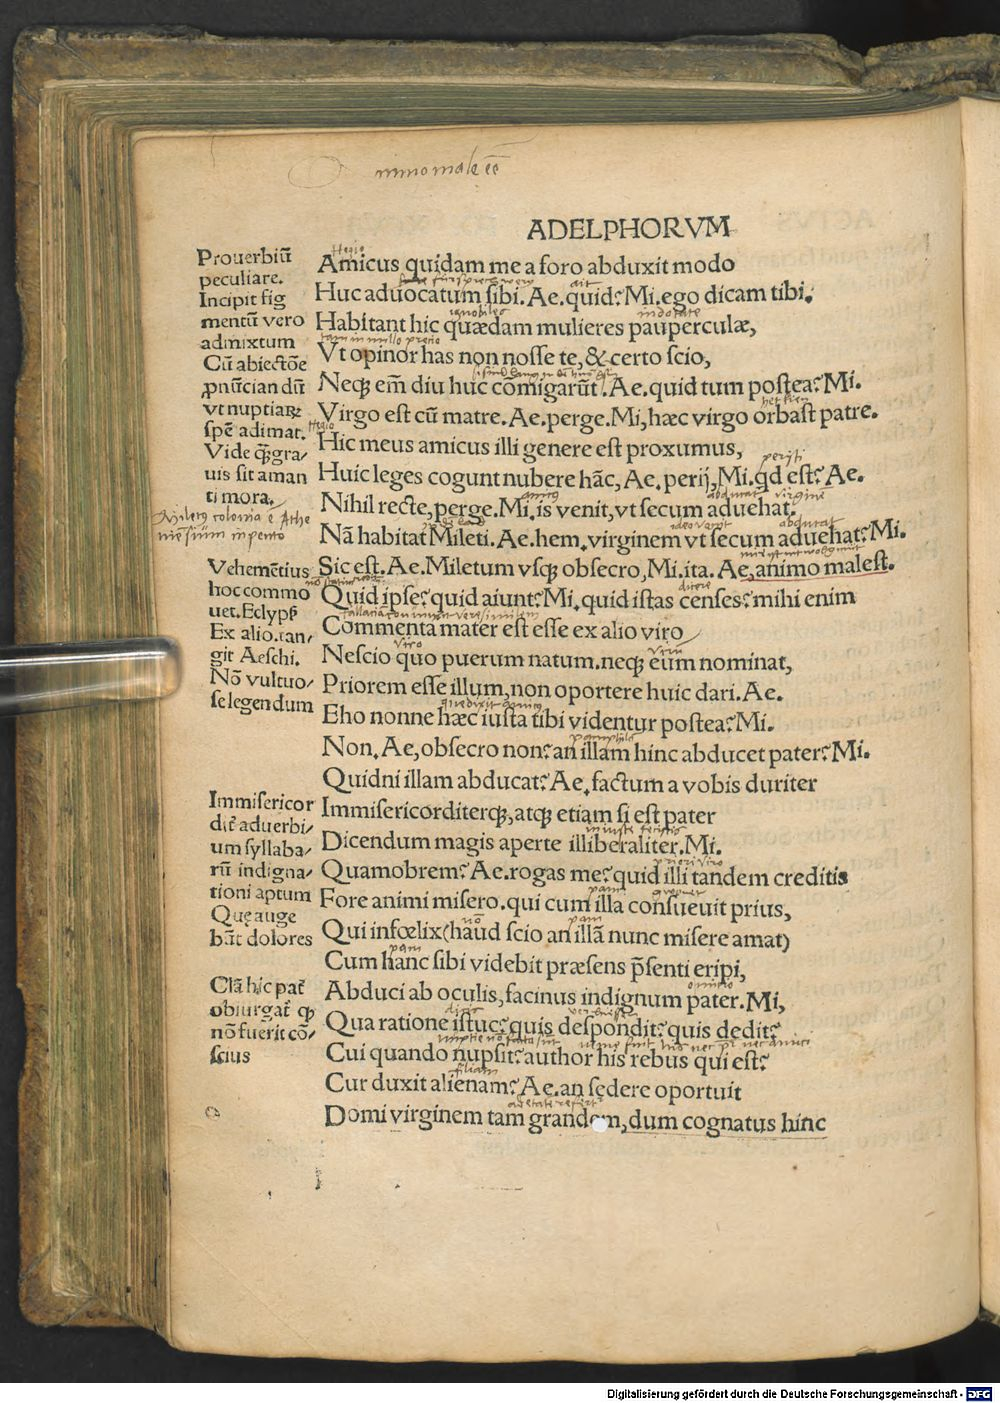 nimo male eē
ADELPHORVM
Prouerbiū
peculiare.
Incipit fig
mentū vero
admixtum
Cū abiectōe
ꝓnūcian dū
vt nuptiaꝝ
spē adimat.
Vide ꝙ̄gra/
uis sit aman
ti mora.
Miletus colonia ē Athe
niēsium in ponto
Vehemētius
hoc commo
uet. Eclyps̄
Ex alio.tan/
git Aeschi.
Nō vultuo/
se legendum
Immisericor
dit̄ aduerbi/
um syllaba/
rū indigna/
tioni aptum
Quę auge
bāt dolores
Clā hic pat̄
obiurgat̄ ꝙ
nō fuerit cō/
scius
Hegio
Amicus quidam me a foro abduxit modo
ait
Huc aduocatum sibi. Ae. quid? Mi. ego dicam tibi.
ignobiles indotate
Habitant hic quædam mulieres pauperculæ,
tam in nullo precio
Vt opinor has non nosse te, & certo scio,
Neqꝫ em̄ diu huc cōmigarūt. Ae. quid tum postea? Mi.
Virgo est cū matre. Ae. perge. Mi, hæc virgo orbast patre.
Hegio
Hic meus amicus illi genere est proxumus,
perijti
Huic leges cogunt nubere hāc, Ae. perij, Mi. qd est? Ae.
amicus abducat virginē
Nihil recte, perge. Mi. is venit, vt secum aduehat.
abducat
Nā habitat Mileti. Ae. hem. virginem vt secum aduehat? Mi.
Sic est. Ae. Miletum vsqꝫ obsecro, Mi. ita. Ae, animo malest.
dicere
Quid ipse? quid aiunt? Mi. quid istas censes? mihi enim
Commenta mater est esse ex alio viro
viro virū
Nescio quo puerum natum. neqꝫ eum nominat,
Priorem esse illum, non oportere huic dari. Ae.
que dixit amicus
Eho nonne hæc iusta tibi videntur postea? Mi.
pamphilā
Non. Ae, obsecro non? an illam hinc abducet pater? Mi.
Quidni illam abducat? Ae. factum a vobis duriter
Immisericorditerqꝫ, atqꝫ etiam si est pater
iniuste
Dicendum magis aperte illiberaliter. Mi.
priori viro
Quamobrem? Ae. rogas me? quid illi tandem creditis
pam
Fore animi misero. qui cum illa consueuit prius,
nō pam
Qui infœlix (haud scio an illā nunc misere amat)
pam
Cum hanc sibi videbit præsens p̄senti eripi,
omitio
Abduci ab oculis, facinus indignum pater. Mi,
dicis
Qua ratione istuc? quis despondit? quis dedit?
Cui quando nupsit? author his rebus qui est?
filiam
Cur duxit alienam? Ae. an sedere oportuit
Domi virginem tam grandem, dum cognatus hinc
Digitalisierung gefördert durch die Deutsche Forschungsgemeinschaft - DFG